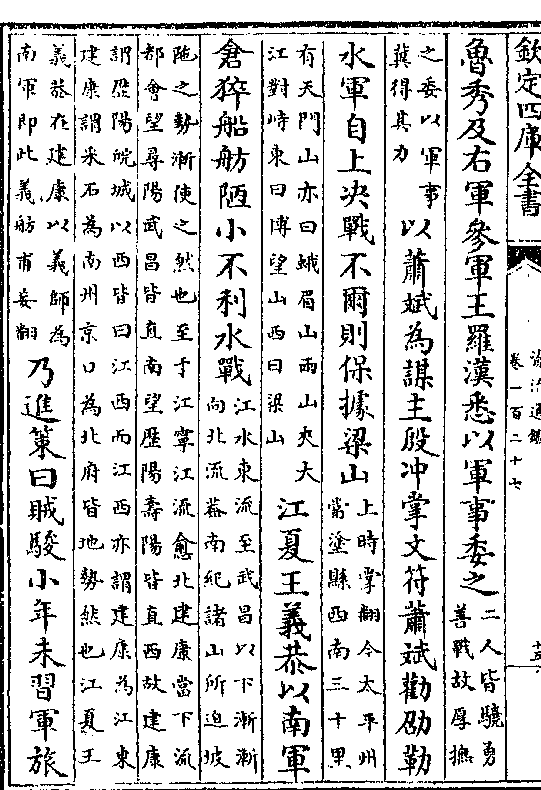 欽定四庫全書
資治通鑑
卷一百二十七
魯秀及右軍參軍王羅漢悉以軍事委之二人皆驍勇
善戰故厚撫
之委以軍事
冀得其力以蕭斌為謀主殷沖掌文符蕭斌勸劭勒
水軍自上決戰不爾則保據梁山上時掌翻今太平州
當塗縣西南三十里
有天門山亦曰蛾眉山兩山夾大
江對峙東曰博望山西曰梁山江夏王義恭以南軍
倉猝船舫陋小不利水戰江水東流至武昌以下漸漸
向北流蓋南紀諸山所迫坡
陁之勢漸使之然也至于江寧江流愈北建康當下流
都會望尋陽武昌皆直南望歷陽壽陽皆直西故建康
謂歷陽皖城以西皆曰江西而江西亦謂建康為江東
建康謂采石為南州京口為北府皆地勢然也江夏王
義恭在建康以義師為
南軍即此義舫甫妄翻乃進策曰賊駿小年未習軍旅